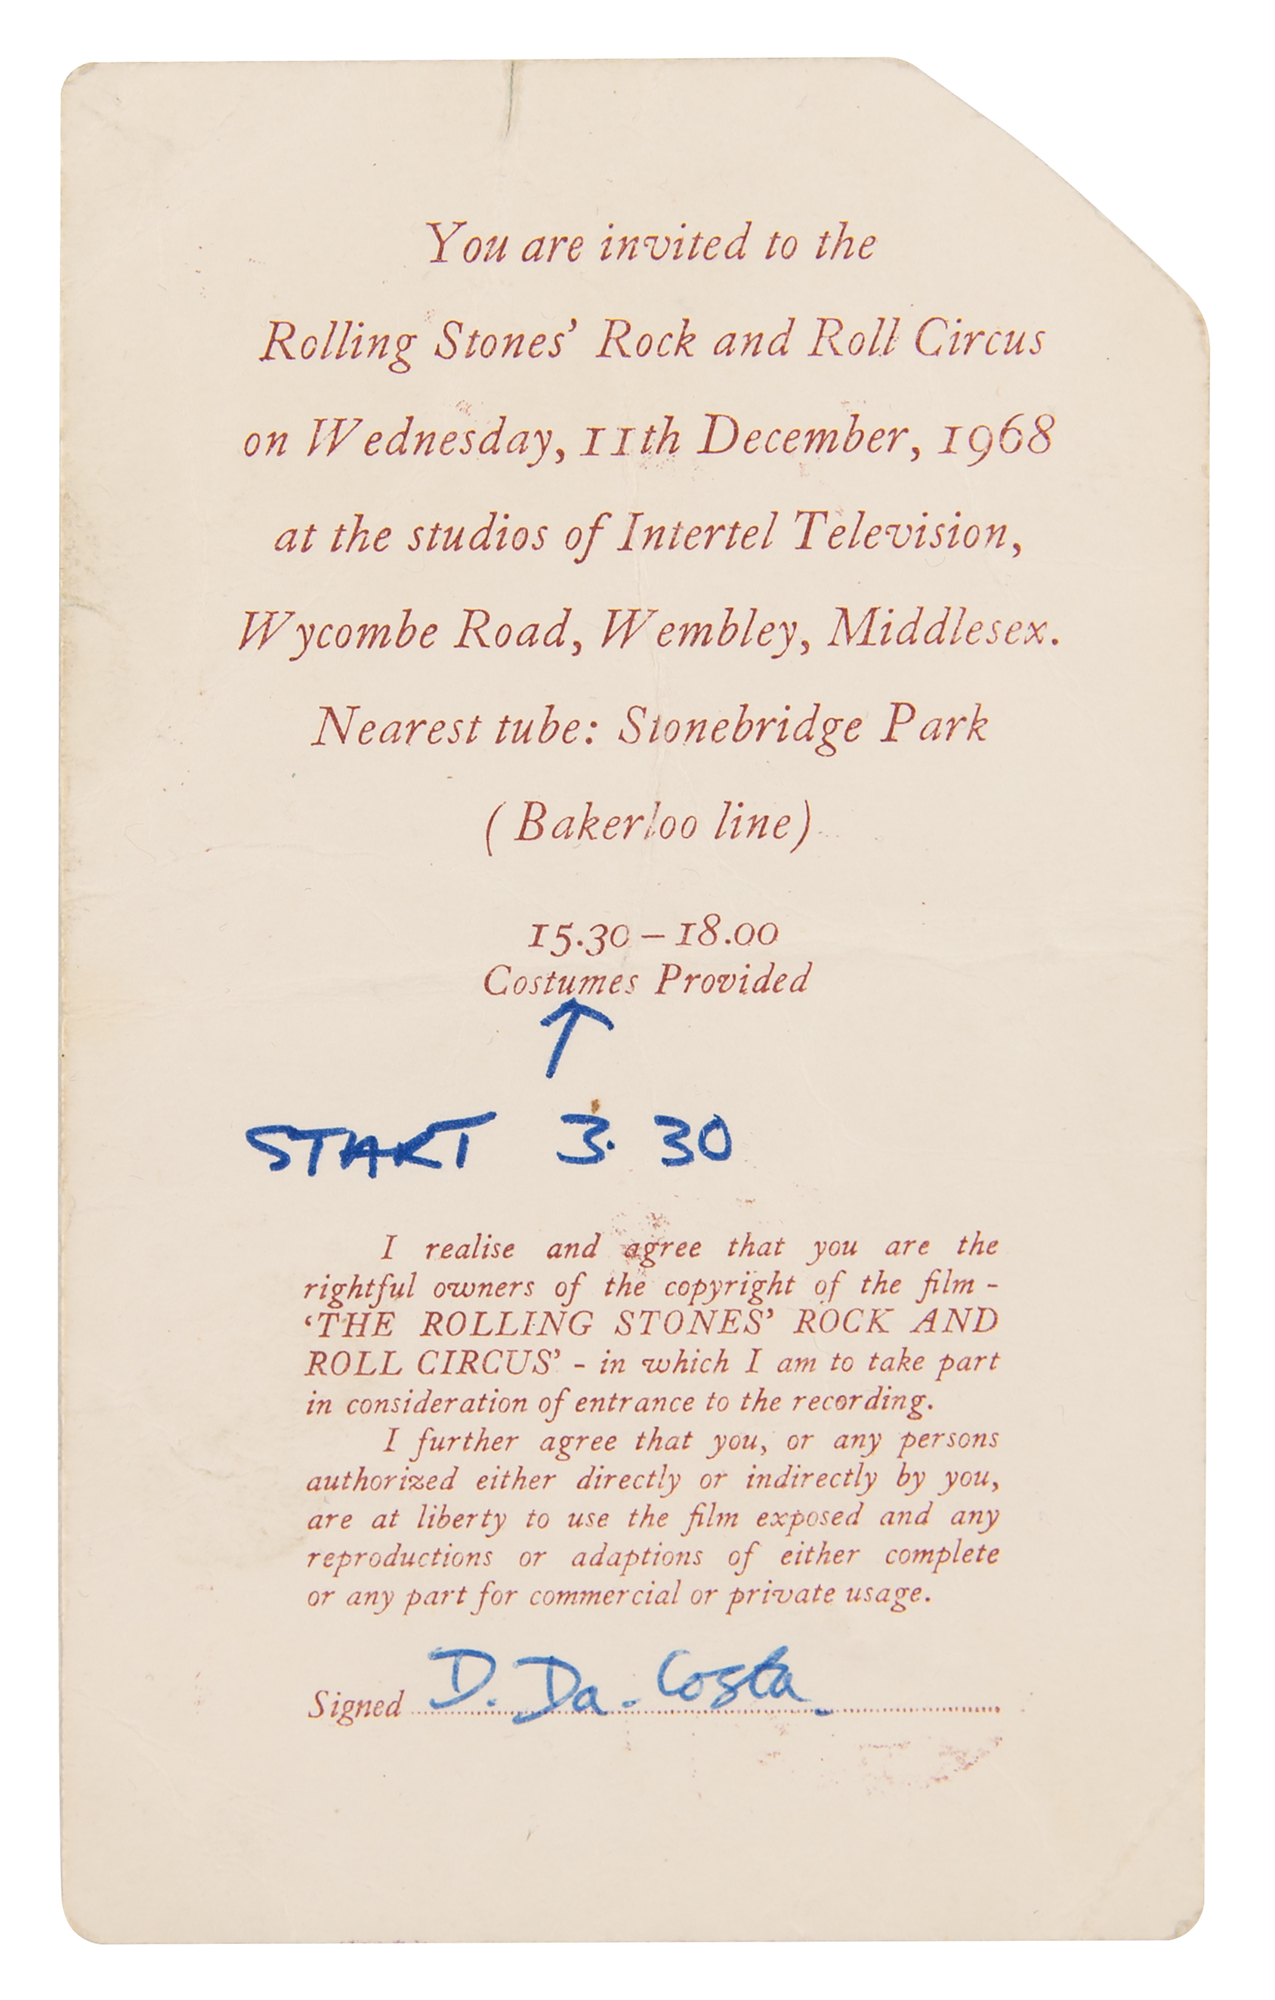 You are invited to the
Rolling Stones' Rock and Roll Circus
on Wednesday, 11th December, 1968
at the studios of Intertel Television,
Wycombe Road, Wembley, Middlesex.
Nearest tube: Stonebridge Park
(Bakerloo line)
15.30 – 18.00
Costumes Provided
↑
START 3.30
I realise and agree that you are the
rightful owners of the copyright of the film -
'THE ROLLING STONES' ROCK AND
ROLL CIRCUS' - in which I am to take part
in consideration of entrance to the recording.
I further agree that you, or any persons
authorized either directly or indirectly by you,
are at liberty to use the film exposed and any
reproductions or adaptions of either complete
or any part for commercial or private usage.
Signed D. Da. Costa.